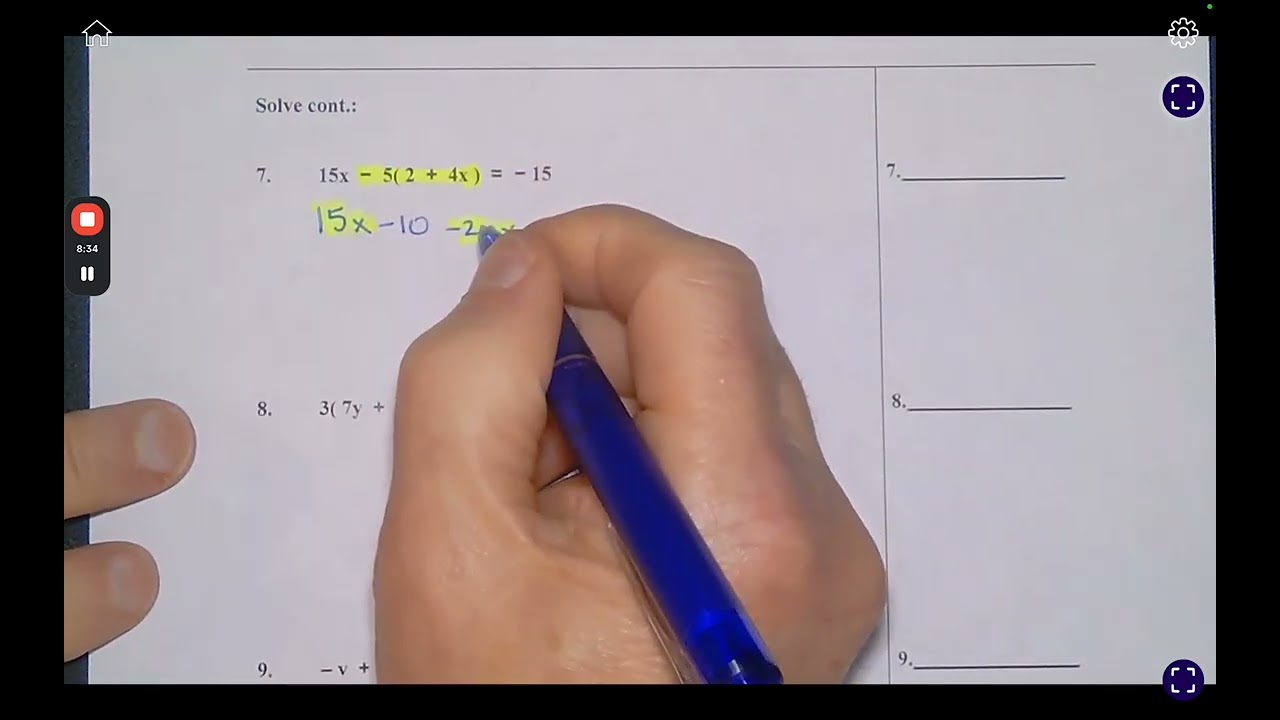 Solve cont.:
7. 15x − 5( 2 + 4x ) = − 15
7.
15x −10
8:34
8. 3( 7y +
8.
9. − v +
9.